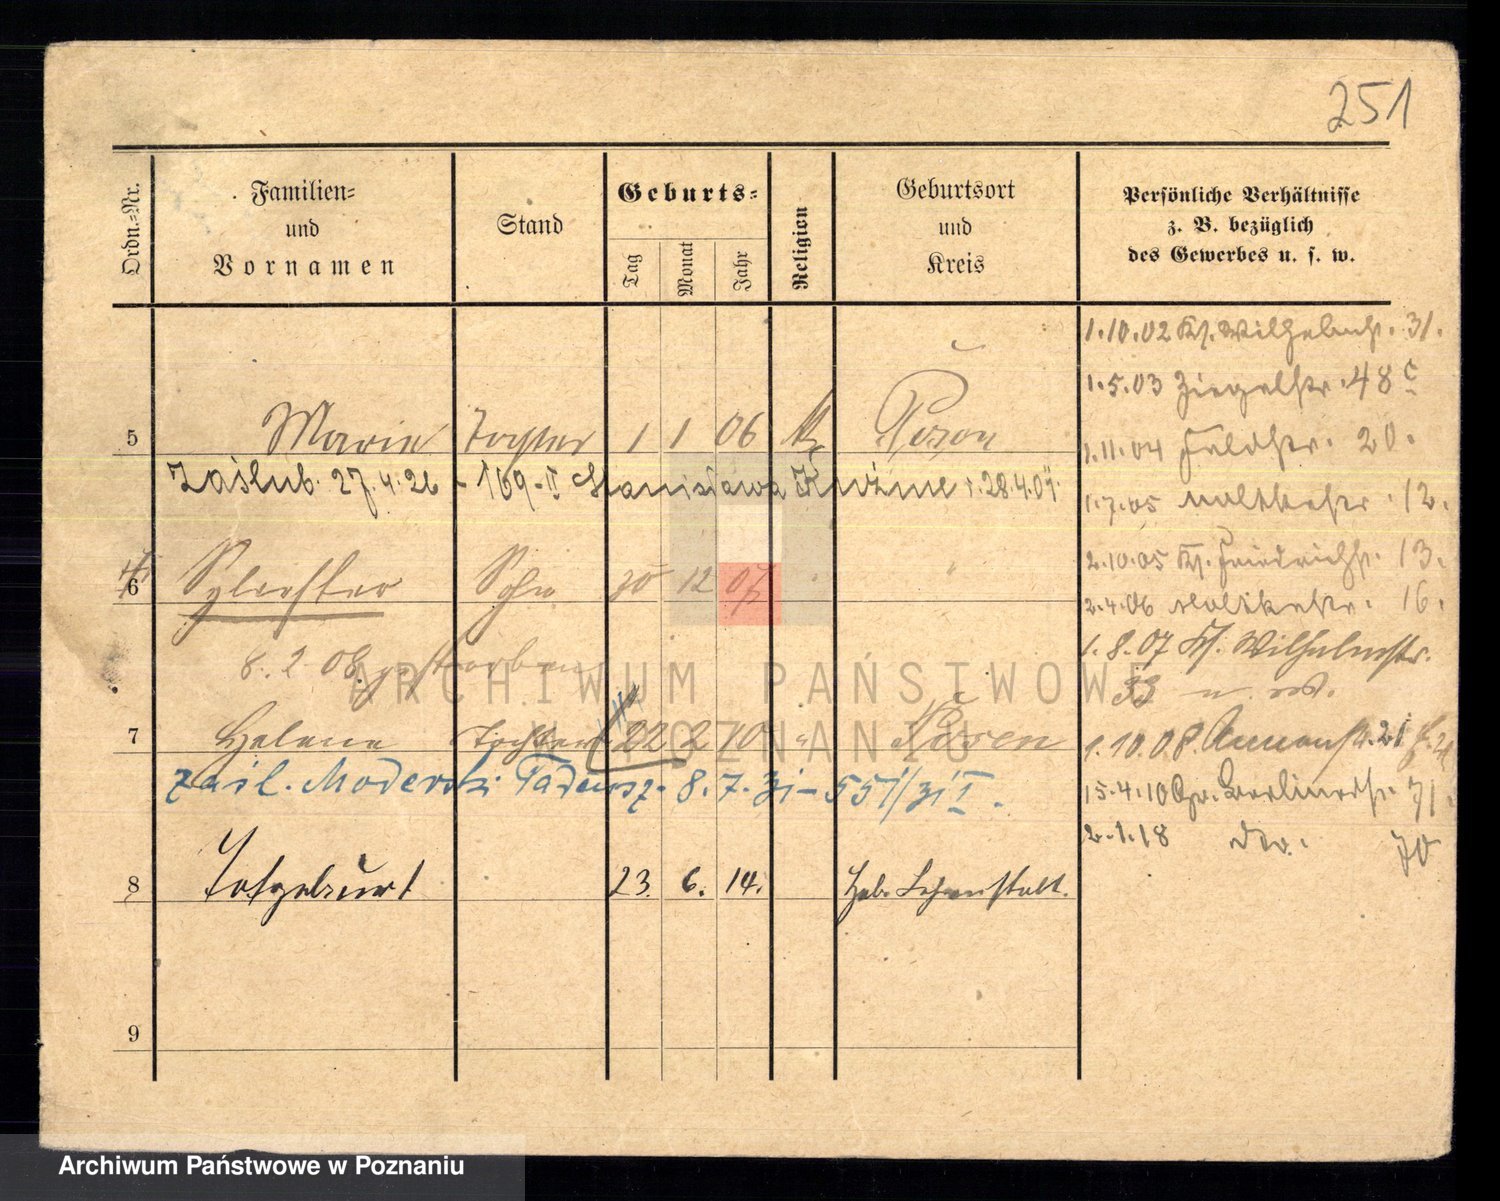 251
Ordn.-Nr.
Familien-
und
Vornamen
Stand
Geburts-
Tag
Monat
Jahr
Religion
Geburtsort
und
Kreis
Persönliche Verhältnisse
z. B. bezüglich
des Gewerbes u. s. w.
5 Marie Tochter 1 1 06 Posen
Zaślub. 27.4.26 - 169-II Stanisława 28.4.01.
6 Sylvester Sohn 30 12 07
8.2.08 gestorben
7 Helene Tochter 22 2 10 " Posen
zaśl. Moderski Tadeusz 8.7.31 - 551/31 I.
8 Totgeburt 23. 6. 14. Heb. Lehranstalt.
9
1.10.02 Kl. Wilhelmstr. 31.
1.5.03 Ziegelstr. 48 c
1.11.04 Feldstr. 20.
1.7.05 Moltkestr. 12.
2.10.05 Kl. Friedrichstr. 13.
2.4.06 Moltkestr. 16.
1.8.07 Kl. Wilhelmstr.
33
1.10.08 21
15.4.10 Gr. Berlinerstr. 71.
2.1.18 do. 70
ARCHIWUM PAŃSTWOWE
W POZNANIU
Archiwum Państwowe w Poznaniu